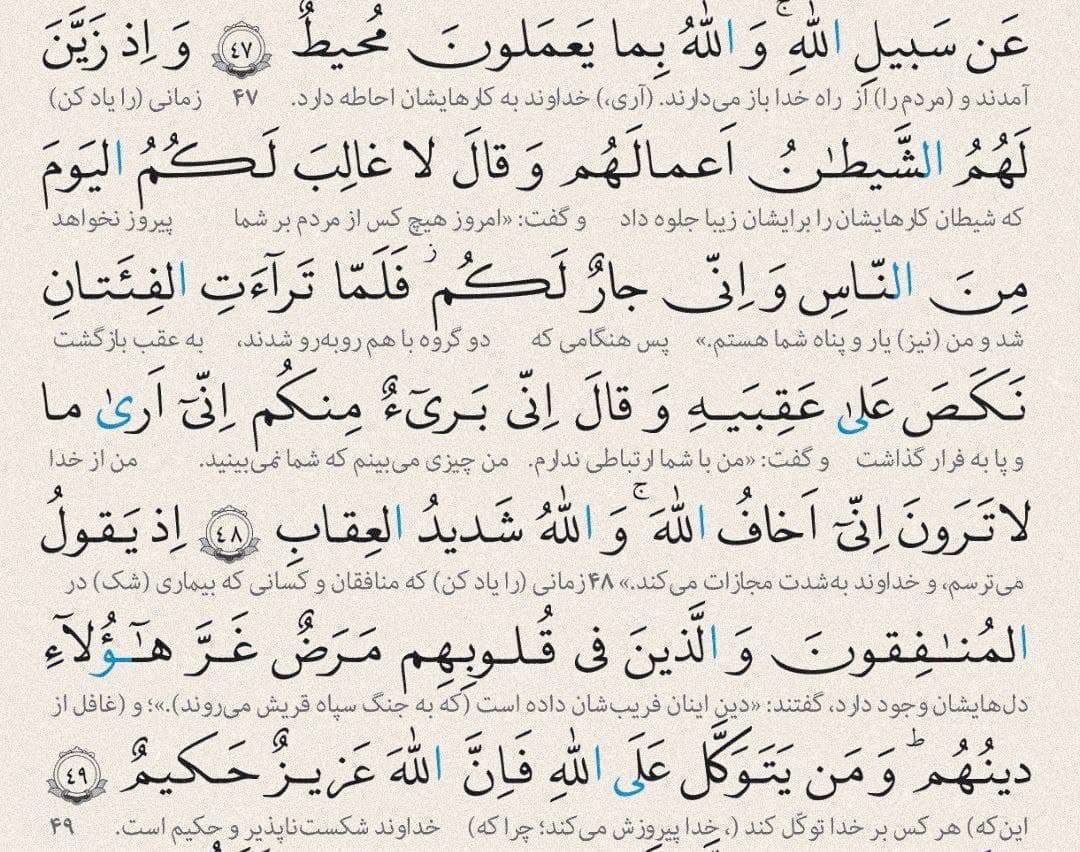 عَن سَبيلِ اللّٰهِ ۚ وَ اللّٰهُ بِما يَعمَلونَ مُحيطٌ ٤٧ وَ اِذ زَيَّنَ
آمدند و (مردم را) از راه خدا باز می‌دارند. (آری،) خداوند به کارهایشان احاطه دارد. ۴۷ زمانی (را یاد کن)
لَهُمُ الشَّيطـٰنُ اَعمالَهُم وَ قالَ لا غالِبَ لَكُمُ اليَومَ
که شیطان کارهایشان را برایشان زیبا جلوه داد و گفت: «امروز هیچ کس از مردم بر شما پیروز نخواهد
مِنَ النّاسِ وَ اِنّى جارٌ لَكُم ز فَلَمّا تَرآءَتِ الفِئَتانِ
شد و من (نیز) یار و پناه شما هستم.» پس هنگامی که دو گروه با هم روبه‌رو شدند، به عقب بازگشت
نَكَصَ عَلىٰ عَقِبَيهِ وَ قالَ اِنّى بَرىٓءٌ مِنكُم اِنّىٓ اَرىٰ ما
و پا به فرار گذاشت و گفت: «من با شما ارتباطی ندارم. من چیزی می‌بینم که شما نمی‌بینید. من از خدا
لا تَرَونَ اِنّىٓ اَخافُ اللّٰهَ ۚ وَ اللّٰهُ شَديدُ العِقابِ ٤٨ اِذ يَقولُ
می‌ترسم، و خداوند به‌شدت مجازات می‌کند.» ۴۸ زمانی (را یاد کن) که منافقان و کسانی که بیماری (شک) در
المُنـٰفِقونَ وَ الَّذينَ فى قُلوبِهِم مَرَضٌ غَرَّ هـٰٓؤُلآءِ
دل‌هایشان وجود دارد، گفتند: «دینِ اینان فریب‌شان داده است (که به جنگ سپاه قریش می‌روند).»؛ و (غافل از
دينُهُم ۗ وَ مَن يَتَوَكَّل عَلَى اللّٰهِ فَاِنَّ اللّٰهَ عَزيزٌ حَكيمٌ ٤٩
این‌که) هر کس بر خدا توکّل کند (، خدا پیروزش می‌کند؛ چرا که) خداوند شکست‌ناپذیر و حکیم است. ۴۹